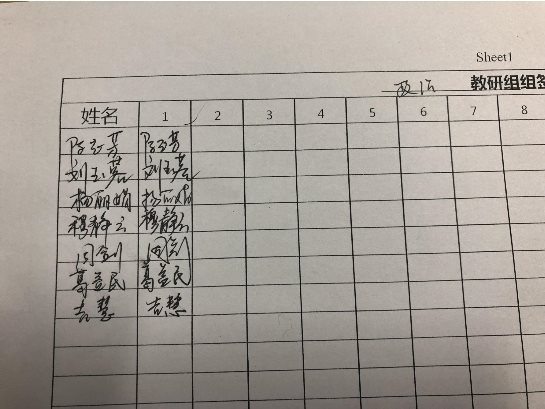 Sheet1
政治 教研组组签
姓名 1 2 3 4 5 6 7 8
刘玉茗 刘玉茗
杨丽娟 杨丽娟
穆静云 穆静云
周剑 周剑
葛益民 葛益民
吉慧 吉慧